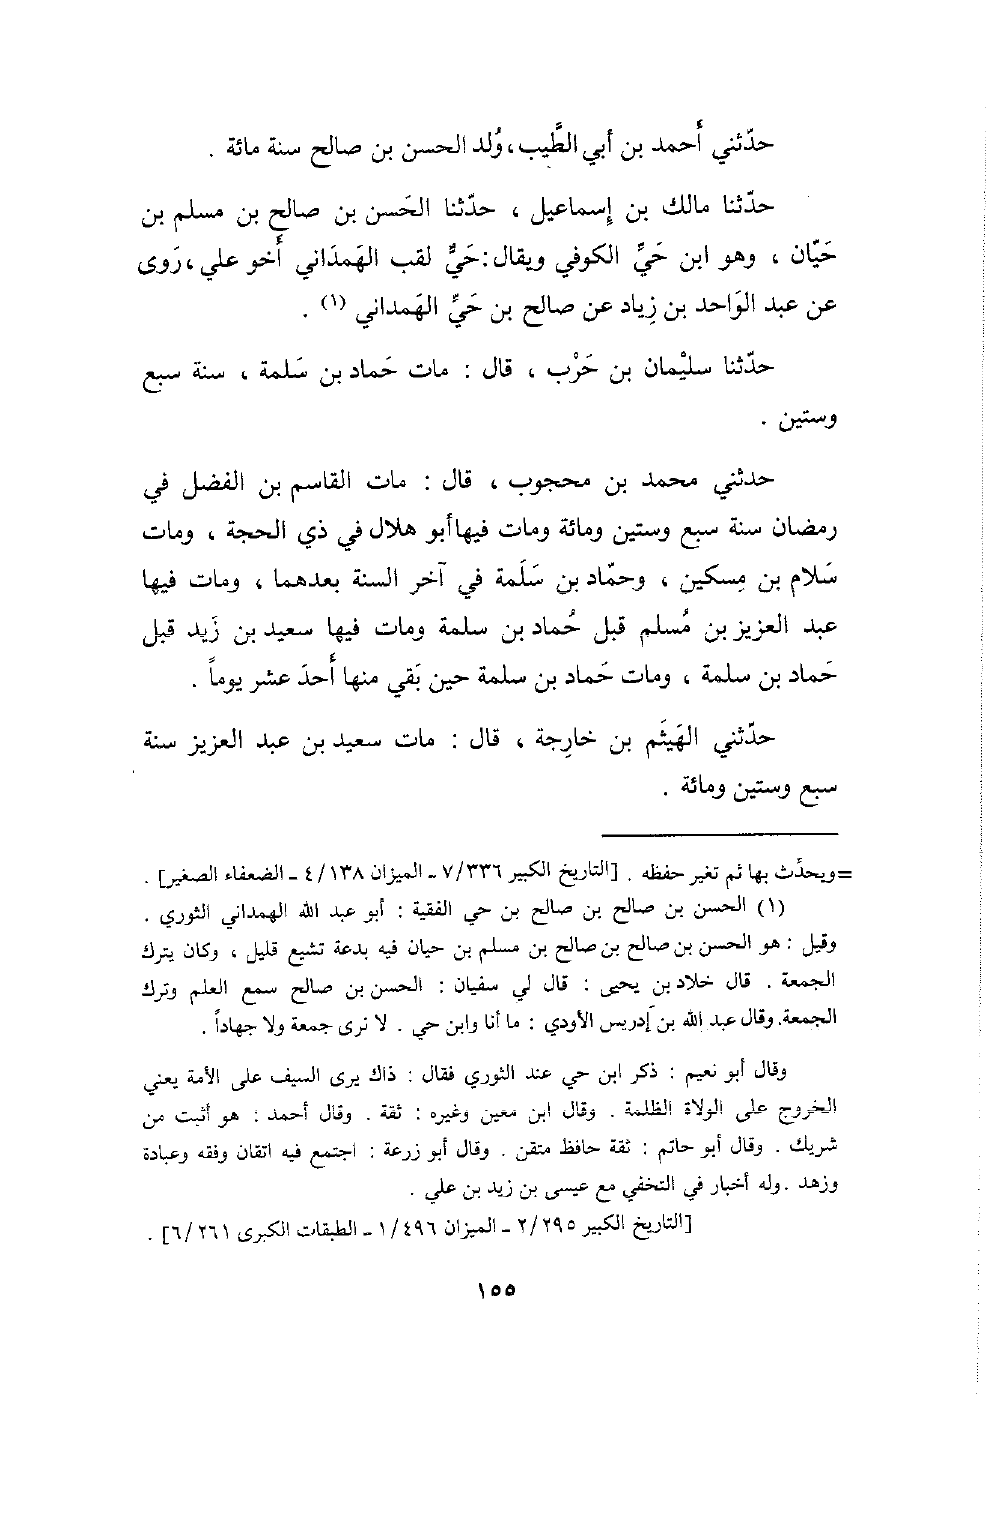 حدّثني أَحمد بن أبي الطَّيب، وُلد الحسن بن صالح سنة مائة .
حدّثنا مالك بن إِسماعيل ، حدّثنا الحَسن بن صالح بن مسلم بن
حَيّان ، وهو ابن حَيِّ الكوفي ويقال: حَيٌّ لقب الهَمدَاني أَخو علي ، رَوى
عن عبد الوَاحد بن زِياد عن صالح بن حَيِّ الهَمداني (١) .
حدّثنا سليْمان بن حَرْب ، قال : مات حَماد بن سَلمة ، سنة سبع
وستين .
حدثني محمد بن محجوب ، قال : مات القاسم بن الفضل في
رمضان سنة سبع وستين ومائة ومات فيها أبو هلال في ذي الحجة ، ومات
سَلام بن مِسكين ، وحمّاد بن سَلَمة في آخر السنة بعدهما ، ومات فيها
عبد العزيز بن مُسلم قبل حُماد بن سلمة ومات فيها سعيد بن زَيد قبل
حَماد بن سلمة ، ومات حَماد بن سلمة حين بَقي منها أَحدَ عشر يوماً .
حدّثني الهَيثَم بن خارِجة ، قال : مات سعيد بن عبد العزيز سنة
سبع وستين ومائة .
=ويحدَّث بها ثم تغير حفظه . [التاريخ الكبير ٧/٣٣٦ ـ الميزان ٤/١٣٨ ـ الضعفاء الصغير] .
(١) الحسن بن صالح بن صالح بن حي الفقية : أبو عبد الله الهمداني الثوري .
وقيل : هو الحسن بن صالح بن صالح بن مسلم بن حيان فيه بدعة تشيع قليل ، وكان يترك
الجمعة . قال خلاد بن يحيى : قال لي سفيان : الحسن بن صالح سمع العلم وترك
الجمعة. وقال عبد الله بن إدريس الأودي : ما أنا وابن حي . لا نرى جمعة ولا جهاداً .
وقال أبو نعيم : ذكر ابن حي عند الثوري فقال : ذاك يرى السيف على الأمة يعني
الخروج على الولاة الظلمة . وقال ابن معين وغيره : ثقة . وقال أحمد : هو أثبت من
شريك . وقال أبو حاتم : ثقة حافظ متقن . وقال أبو زرعة : اجتمع فيه اتقان وفقه وعبادة
وزهد . وله أخبار في التخفي مع عيسى بن زيد بن علي .
[التاريخ الكبير ٢/٢٩٥ ـ الميزان ١/٤٩٦ ـ الطبقات الكبرى ٦/٢٦١] .
١٥٥